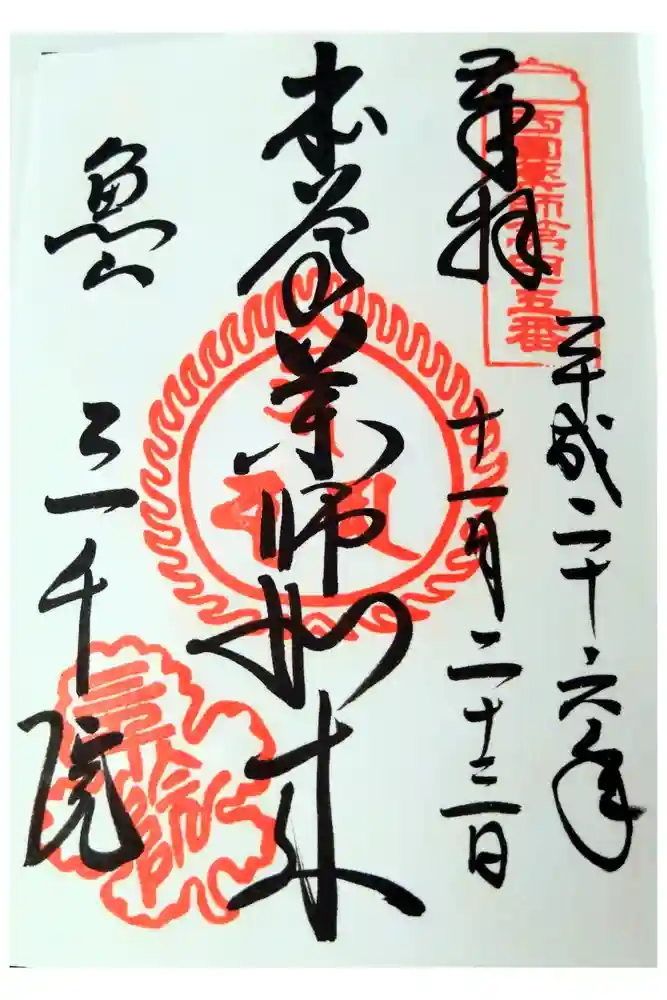 西國薬師第四五番
奉拝
平成二十六年
十一月二十三日
本尊薬師如来
魚山
三千院